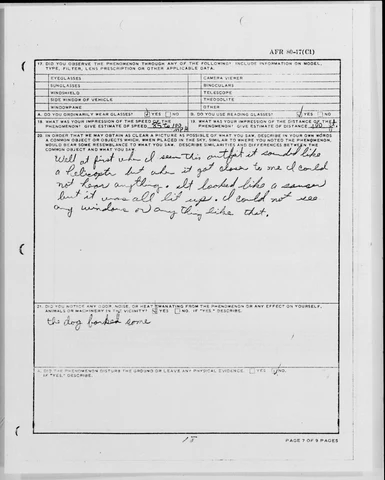 AFR 80-17(C1)
17. DID YOU OBSERVE THE PHENOMENON THROUGH ANY OF THE FOLLOWING? INCLUDE INFORMATION ON MODEL,
TYPE, FILTER, LENS PRESCRIPTION OR OTHER APPLICABLE DATA.
EYEGLASSES CAMERA VIEWER
SUNGLASSES BINOCULARS
WINDSHIELD TELESCOPE
SIDE WINDOW OF VEHICLE THEODOLITE
WINDOWPANE OTHER
A. DO YOU ORDINARILY WEAR GLASSES? YES NO B. DO YOU USE READING GLASSES? YES NO
18. WHAT WAS YOUR IMPRESSION OF THE SPEED OF THE 19. WHAT WAS YOUR IMPRESSION OF THE DISTANCE OF THE
PHENOMENON? GIVE ESTIMATE OF SPEED MPH PHENOMENON? GIVE ESTIMATE OF DISTANCE
20. IN ORDER THAT WE MAY OBTAIN AS CLEAR A PICTURE AS POSSIBLE OF WHAT YOU SAW, DESCRIBE IN YOUR OWN WORDS
A COMMON OBJECT OR OBJECTS WHICH, WHEN PLACED IN THE SKY, SIMILAR TO WHERE YOU NOTED THE PHENOMENON,
WOULD BEAR SOME RESEMBLANCE TO WHAT YOU SAW. DESCRIBE SIMILARITIES AND DIFFERENCES BETWEEN THE
COMMON OBJECT AND WHAT YOU SAW.
Well at first when I seen this outfit it sounded like
a helicopter but when it got closer to me I could
not hear anything. It looked like a
but it was all lit up. I could not see
any windows or any thing like that.
21. DID YOU NOTICE ANY ODOR, NOISE, OR HEAT EMANATING FROM THE PHENOMENON OR ANY EFFECT ON YOURSELF,
ANIMALS OR MACHINERY IN THE VICINITY? YES NO. IF "YES," DESCRIBE.
the dog barked some
DID THE PHENOMENON DISTURB THE GROUND OR LEAVE ANY PHYSICAL EVIDENCE. YES NO.
IF "YES," DESCRIBE.
15
PAGE 7 OF 9 PAGES